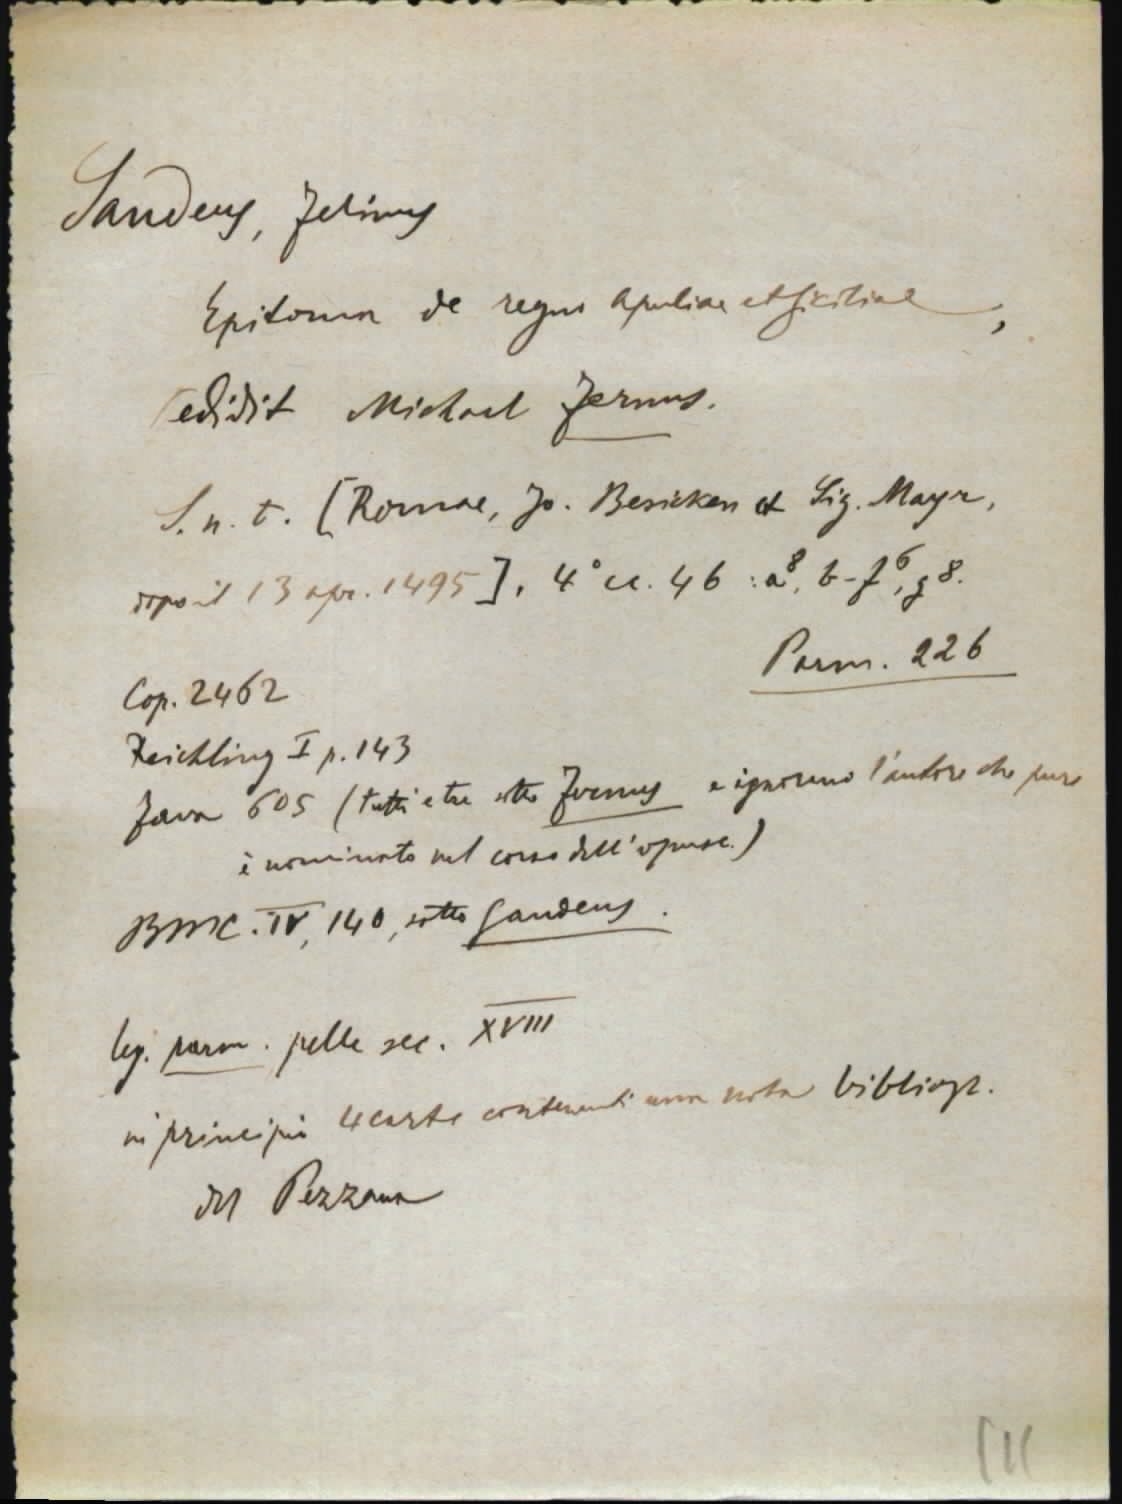 Sandeus, Felinus
Epitoma de regno Apuliae et Siciliae,
edidit Michael Fernus.
S. n. t. [Romae, Jo. Besicken et Sig. Mayr,
dopo il 13 apr. 1495], 4° cc. 46 : a⁸, b-f⁶, g8.
Parm. 226
Cop. 2462
Reichling I p. 143
Fava 605 (tutti e tre sotto Fernus e ignorano l'autore che pure
è nominato nel corso dell'opusc.)
BMC. IV, 140, sotto Sandeus.
leg. parm. pelle sec. XVIII
in principio 4 carte contenenti una nota bibliogr.
del Pezzana